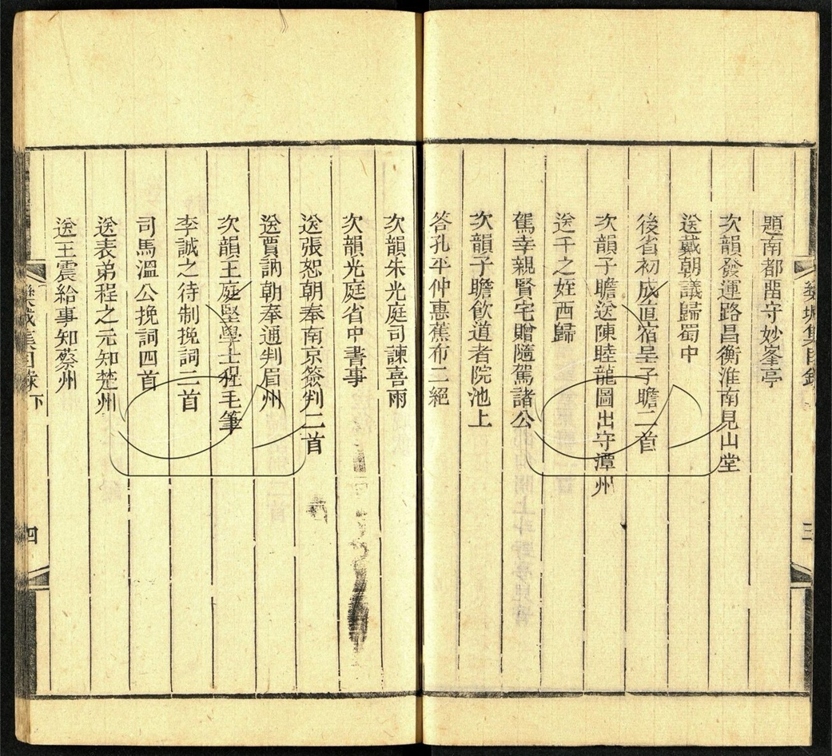 題南都留守妙峯亭
次韻發運路昌衡淮南見山堂
送戴朝議歸蜀中
後省初成直宿呈子瞻二首
次韻子瞻送陳睦龍圖出守潭州
送千之姪西歸
駕幸親賢宅贈隨駕諸公
次韻子瞻飲道者院池上
答孔平仲惠蕉布二絕
欒城集目錄
三
次韻朱光庭司諫喜雨
次韻光庭省中書事
送張恕朝奉南京簽判二首
送賈訥朝奉通判眉州
次韻王庭堅學士猩毛筆
李誠之待制挽詞二首
司馬溫公挽詞四首
送表弟程之元知楚州
送王震給事知蔡州
欒城集目錄下
四